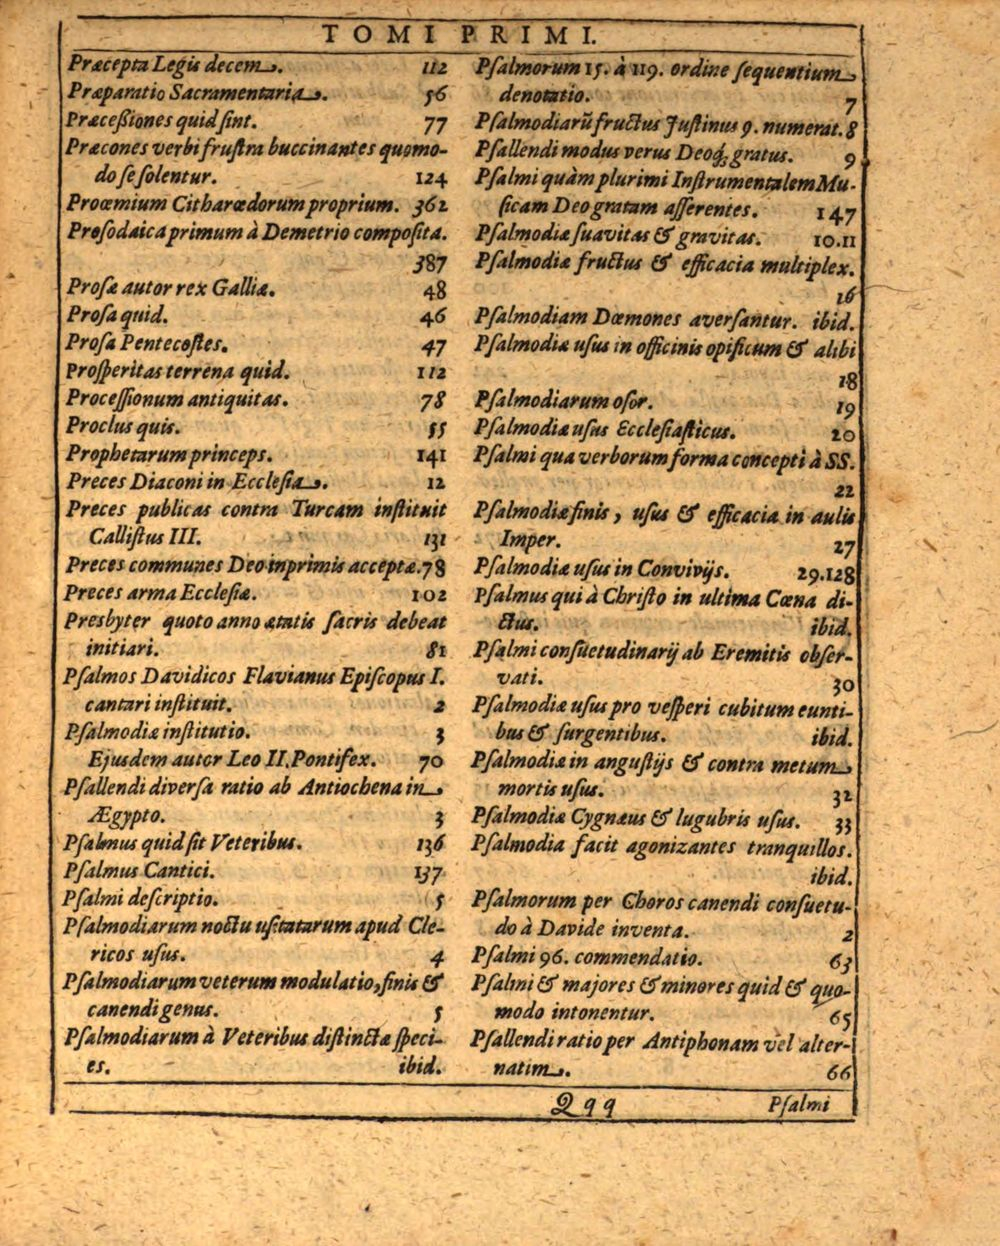 TOMI PRIMI.
Præcepta Legis decem. 112
Præparatio Sacramentaria. 56
Præceßiones quid ſint. 77
Præcones verbi fruſtra buccinantes quomo-
do ſe ſolentur. 124
Proœmium Citharœdorum proprium. 362
Proſodaica primum à Demetrio compoſita.
387
Proſæ autor rex Galliæ. 48
Proſa quid. 46
Proſa Pentecoſtes. 47
Proſperitas terrena quid. 112
Proceſſionum antiquitas. 78
Proclus quis. 55
Prophetarum princeps. 141
Preces Diaconi in Eccleſia. 12
Preces publicas contra Turcam inſtituit
Calliſtus III. 131
Preces communes Deo inprimis acceptæ. 78
Preces arma Eccleſiæ. 102
Presbyter quoto anno ætatis ſacris debeat
initiari. 81
Pſalmos Davidicos Flavianus Epiſcopus I.
cantari inſtituit. 2
Pſalmodiæ inſtitutio. 3
Ejuſdem autor Leo II. Pontifex. 70
Pſallendi diverſa ratio ab Antiochena in
Ægypto. 3
Pſalmus quid ſit Veteribus. 136
Pſalmus Cantici. 137
Pſalmi deſcriptio. 5
Pſalmodiarum noctu uſitatarum apud Cle-
ricos uſus. 4
Pſalmodiarum veterum modulatio, finis &
canendi genus. 5
Pſalmodiarum à Veteribus diſtinctæ ſpeci-
es. ibid.
Pſalmorum 15. à 119. ordine ſequentium
denotatio. 7
Pſalmodiarū fructus Juſtinus 9. numerat. 8
Pſallendi modus verus Deoq́; gratus. 9
Pſalmi quàm plurimi Inſtrumentalem Mu-
ſicam Deo gratam aſſerentes. 147
Pſalmodiæ ſuavitas & gravitas. 10.11
Pſalmodiæ fructus & efficacia multiplex.
16
Pſalmodiam Dæmones averſantur. ibid.
Pſalmodiæ uſus in officinis opificum & alibi
18
Pſalmodiarum oſor. 19
Pſalmodiæ uſus Eccleſiaſticus. 20
Pſalmi qua verborum forma concepti à SS.
22
Pſalmodiæ finis, uſus & efficacia in aulis
Imper. 27
Pſalmodiæ uſus in Convivijs. 29.128
Pſalmus qui à Chriſto in ultima Cœna di-
ctus. ibid.
Pſalmi conſuetudinarij ab Eremitis obſer-
vati. 30
Pſalmodiæ uſus pro veſperi cubitum eunti-
bus & ſurgentibus. ibid.
Pſalmodiæ in anguſtijs & contra metum
mortis uſus. 32
Pſalmodiæ Cygnæus & lugubris uſus. 33
Pſalmodia facit agonizantes tranquillos.
ibid.
Pſalmorum per Choros canendi conſuetu-
do à Davide inventa. 2
Pſalmi 96. commendatio. 63
Pſalmi & majores & minores quid & quo-
modo intonentur. 65
Pſallendi ratio per Antiphonam vel alter-
natim. 66
Qqq Pſalmi